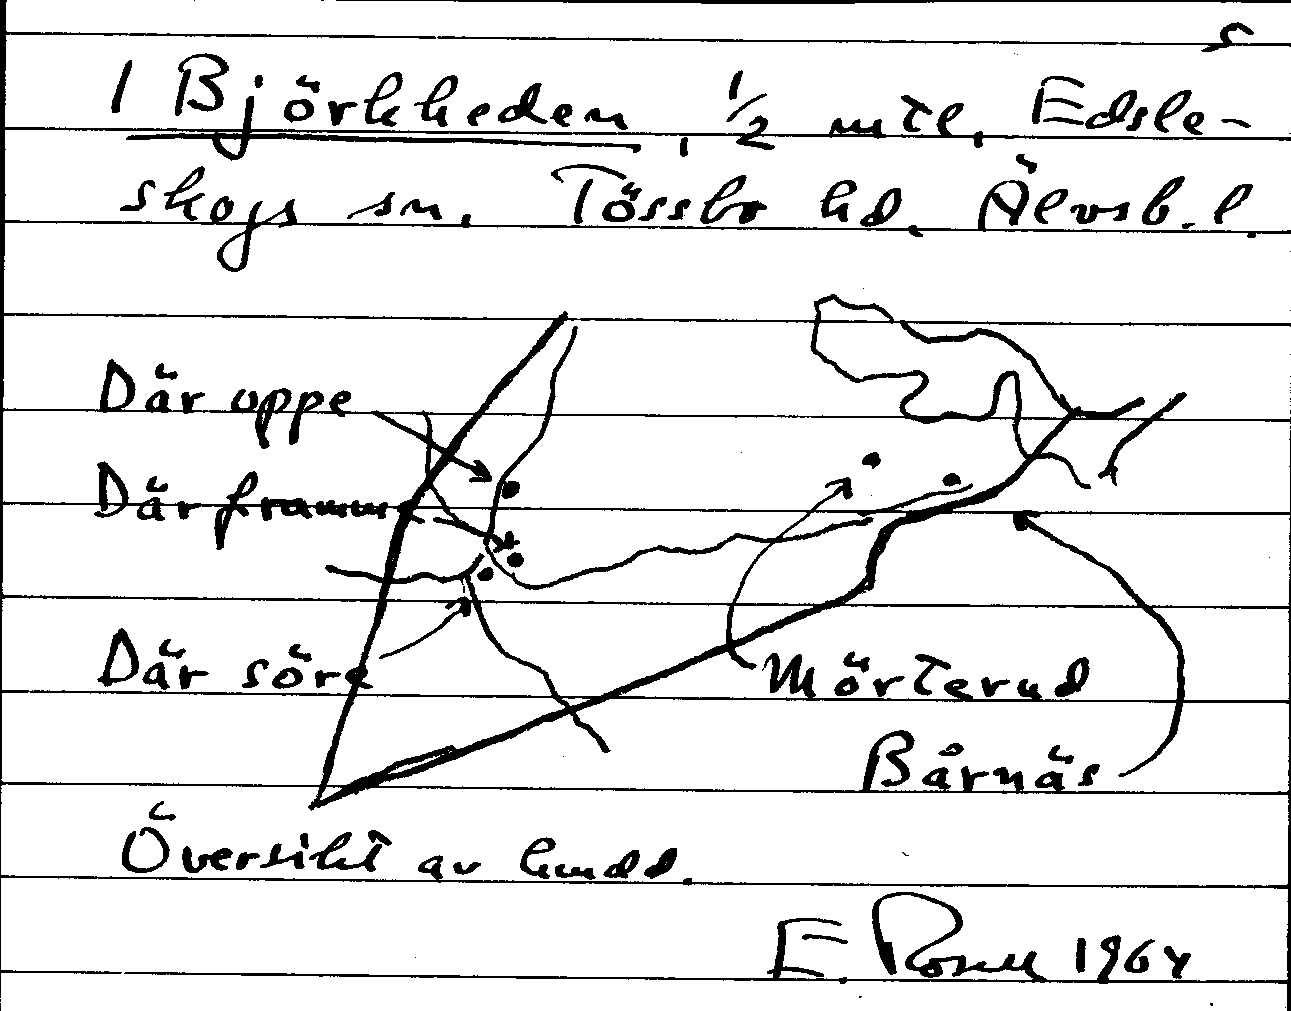 s
1 Björkheden, 1/2 mtl, Edsle-
skogs sn. Tössbo hd. Älvsb. l.
Där oppe
Där framme
Där söre
Mörterud
Bårnäs
Översikt av hmdd.
E. 1964